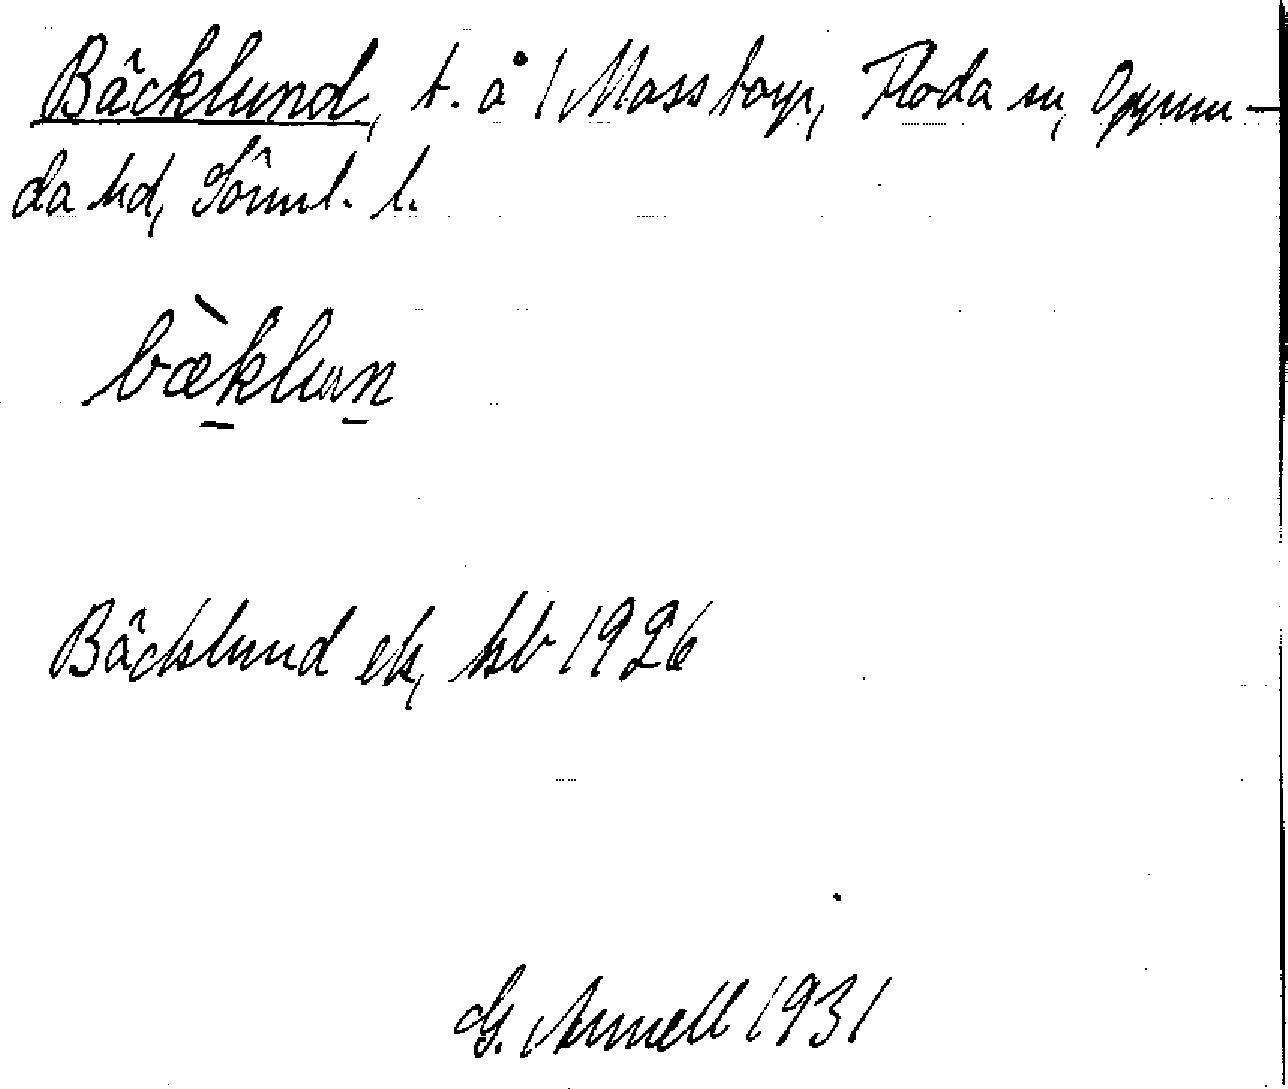 Bäcklund, t. å 1 Masstorp, Floda sn, Oppun-
da hd, Söml. l.
bæ̀klun
Bäcklund ek, kb 1926
G. Arnell 1931